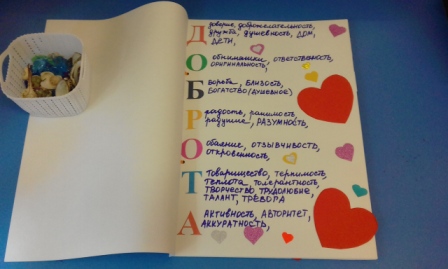 Д доверие, доброжелательность,
дружба, душевность, ДОМ,
ДЕТИ,
О обнимашки, ответственность,
оригинальность,
Б борьба, БЛИЗОСТЬ,
БОГАТСТВО (ДУШЕВНОЕ)
Р радость, ранимость,
радушие, РАЗУМНОСТЬ,
О обаяние, ОТЗЫВЧИВОСТЬ,
откровенность,
Т товарищество, терпимость,
теплота, толерантность,
ТВОРЧЕСТВО, ТРУДОЛЮБИЕ,
ТАЛАНТ, ТРЕВОГА
А АКТИВНОСТЬ, АВТОРИТЕТ,
АККУРАТНОСТЬ,